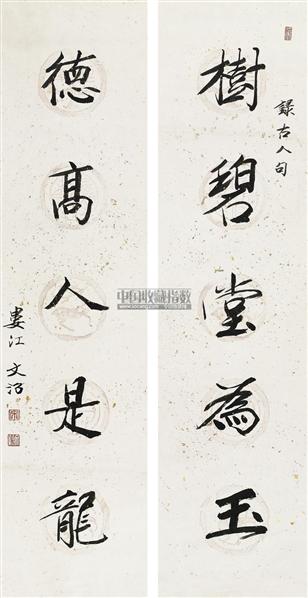 樹碧堂為玉
錄古人句
德高人是龍
婁江文沼
中国收藏指数